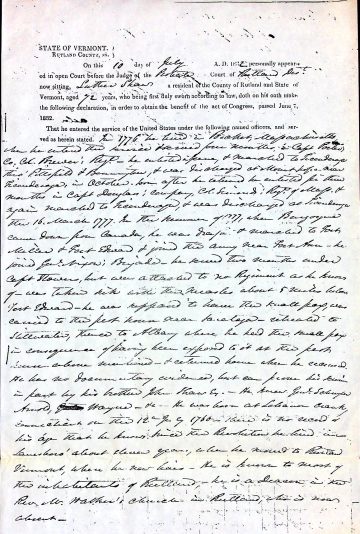 STATE OF VERMONT.
RUTLAND COUNTY, ss.
On this 10 day of July A.D. 1832 personally appear-
ed in open Court before the Judge of the Probate Court of Rutland
now sitting, Luther Shaw a resident of the County of Rutland and State of
Vermont, aged 72 years, who being first duly sworn according to law, doth on his oath make
the following declaration, in order to obtain the benefit of the act of Congress, passed June 7,
1832.
That he entered the service of the United States under the following named officers, and serv-
ed as herein stated. In 1776 he lived in Massachusetts
when he entered the service & served four months, in Capt
Co. Col. Brewer's Regt he enlisted & marched to Ticonderoga
thro Pittsfield & Bennington, & was discharged at near
Ticonderoga, in October. Soon after he enlisted for three
months in Capt Douglass' Company, Col. Regt of Mass. &
again marched to Ticonderoga, & was discharged at Ticonderoga
the 16 March 1777. In the summer of 1777, when Burgoyne
came down from Canada, he was & marched to Fort
& Fort Edward & joined the army near Fort Ann. he
joined Genl Brigade. he served two months under
Capt but was attached to no Regiment as he knows
of— was taken sick with the Measles about 5 miles below
Fort Edward— he was supposed to have the small pox, was
carried to the pest house near Saratoga retreated to
Stillwater, thence to Albany where he had the small pox
in consequence of having been exposed to it at the pest
house & returned home when he recovered.
He has no documentary evidence, but can prove his service
in part by his brother John Shaw — He knew Genl Schuyler
Arnold, Wayne— &c — He was born at Lebanon Crank,
Connecticut on the 12th July 1760— there is no record of
his age that he knows. since the Revolution he lived in
Lanesboro' about eleven years, when he moved to Rutland
Vermont, where he now lives— He is known to most of
the inhabitants of Rutland,— he is a Deacon in the
Rev. Mr. Walker's church in Rutland, who is now
absent—